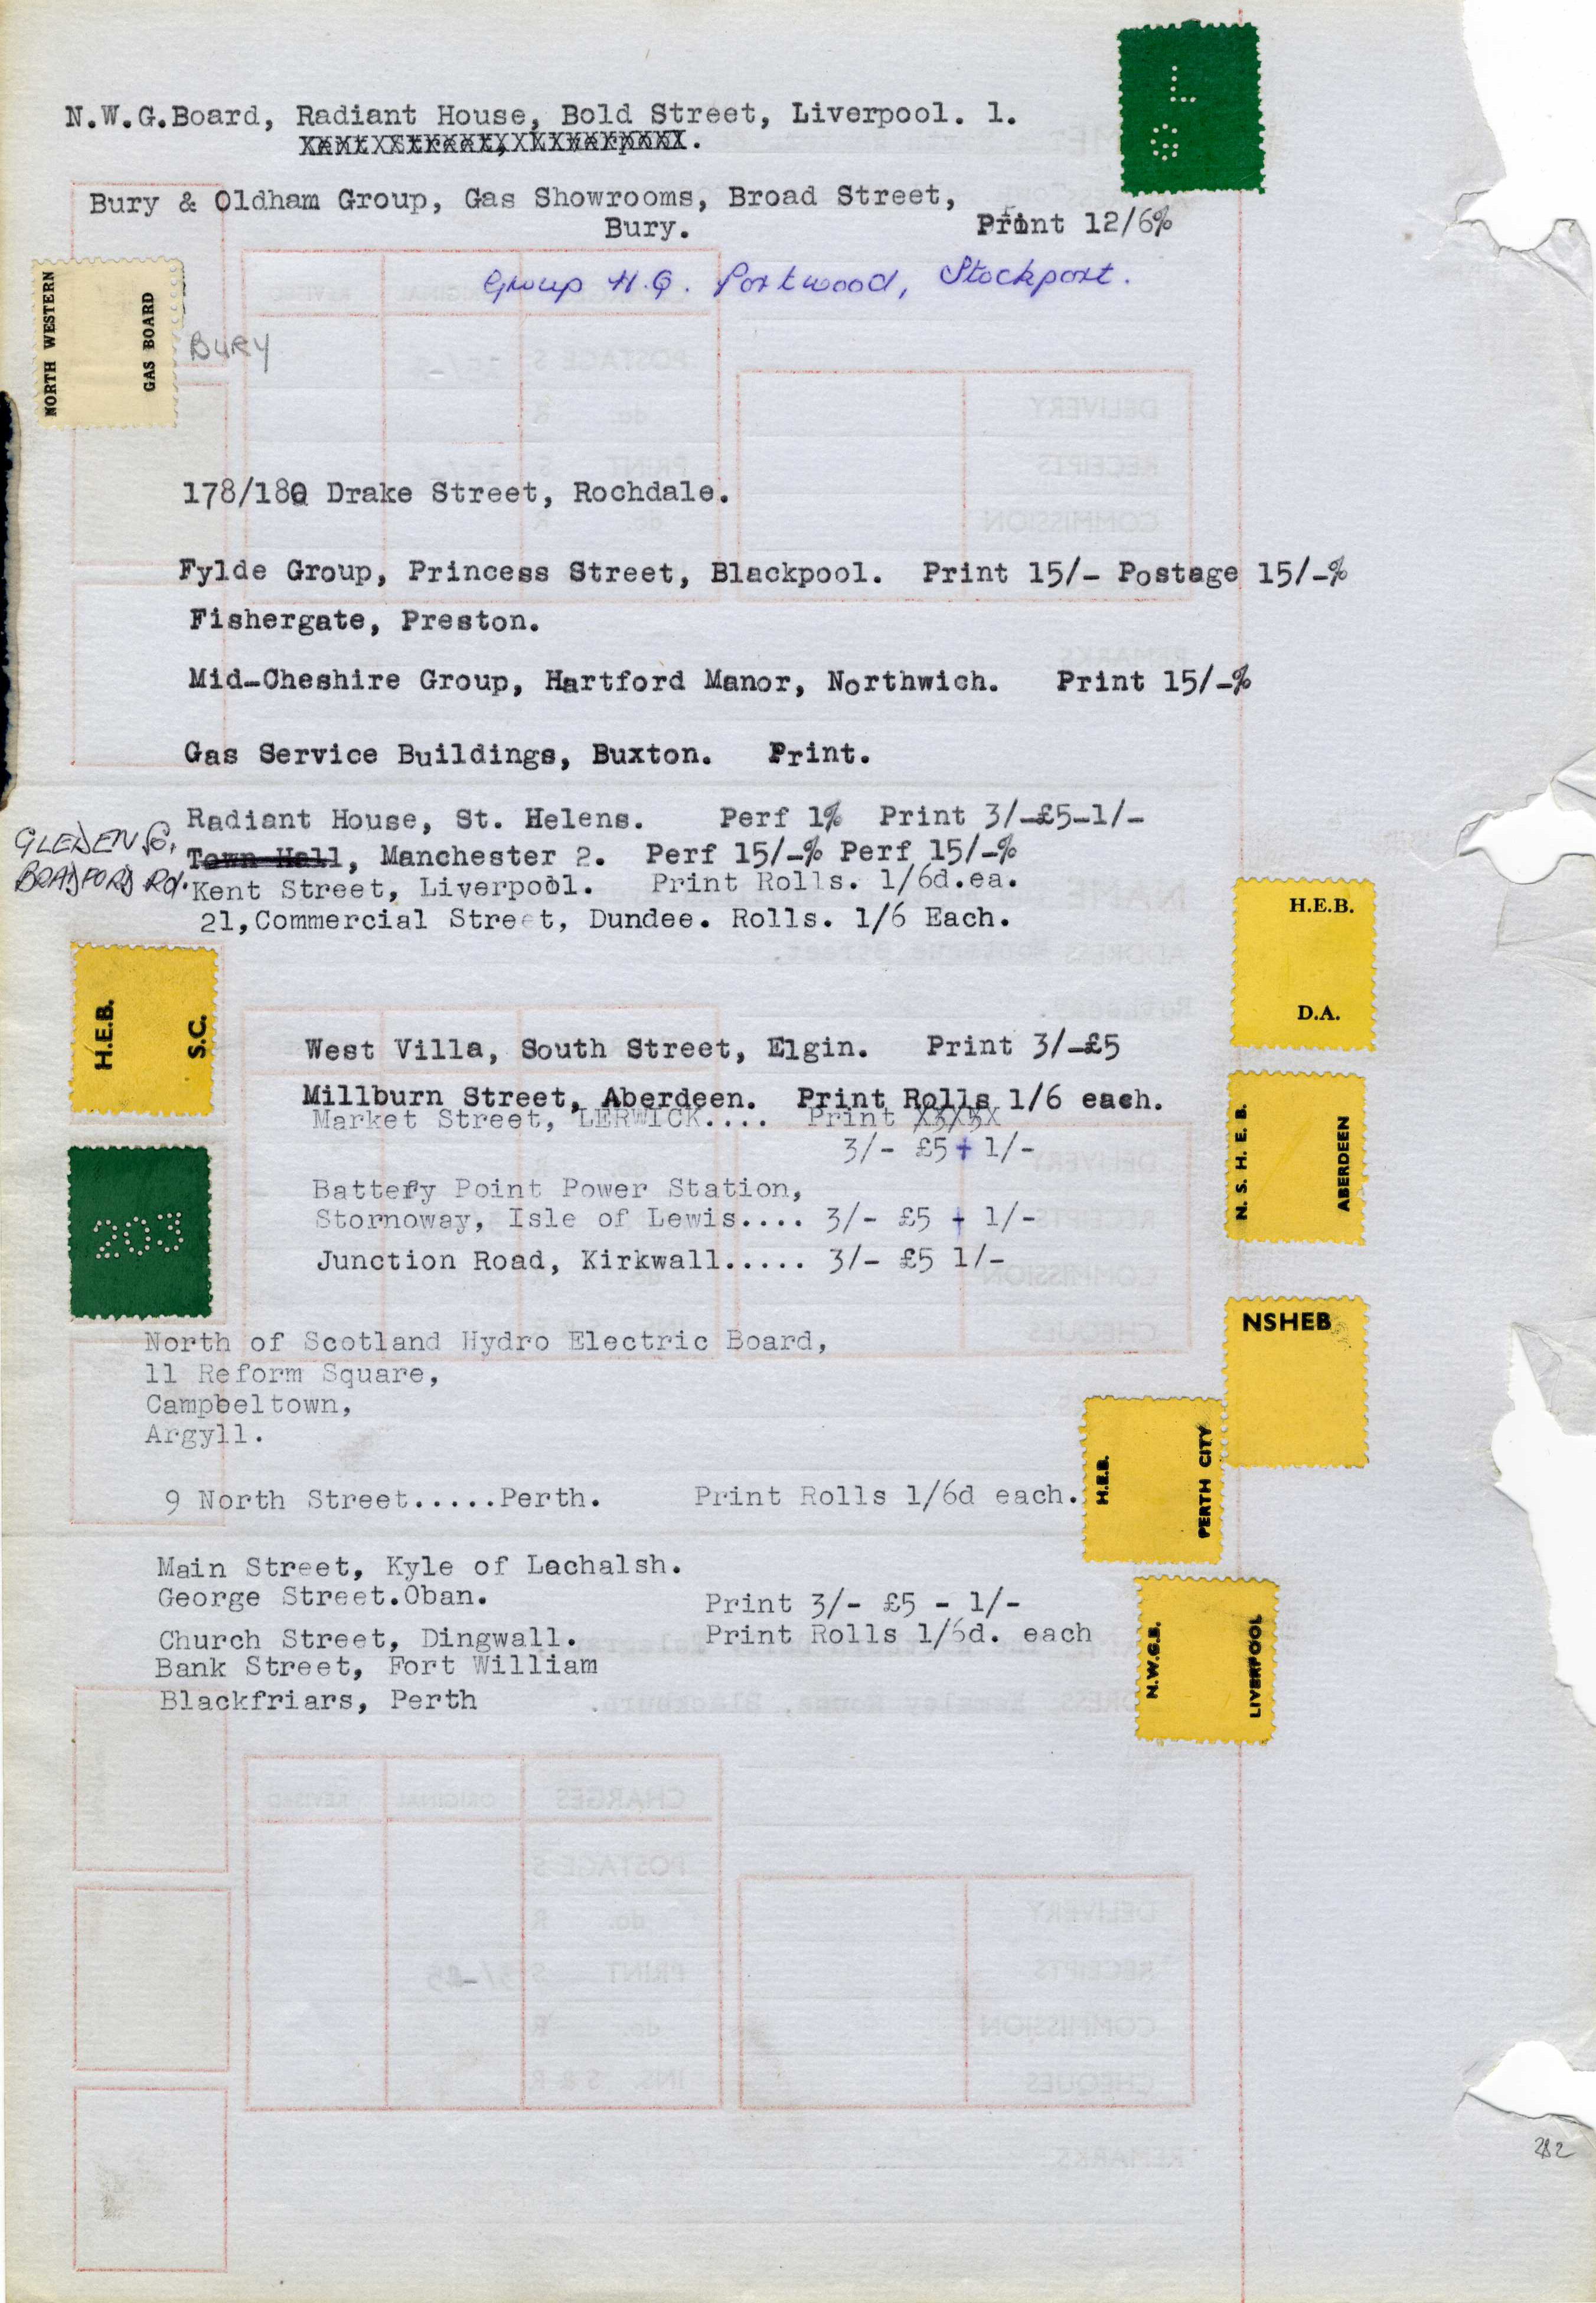 N.W.G.Board, Radiant House, Bold Street, Liverpool. 1.
L
G
Bury & Oldham Group, Gas Showrooms, Broad Street,
Bury. Print 12/6%
Group H.Q. Portwood, Stockport.
NORTH WESTERN
GAS BOARD
BURY
178/180 Drake Street, Rochdale.
Fylde Group, Princess Street, Blackpool. Print 15/- Postage 15/-%
Fishergate, Preston.
Mid-Cheshire Group, Hartford Manor, Northwich. Print 15/-%
Gas Service Buildings, Buxton. Print.
Radiant House, St. Helens. Perf 1% Print 3/-£5-1/-
Town Hall, Manchester 2. Perf 15/-% Perf 15/-%
BRADFORD Rd. Kent Street, Liverpool. Print Rolls. 1/6d.ea.
21,Commercial Street, Dundee. Rolls. 1/6 Each.
H.E.B.
D.A.
H.E.B.
S.C.
West Villa, South Street, Elgin. Print 3/-£5
Millburn Street, Aberdeen. Print Rolls 1/6 each.
Market Street, LERWICK.... Print
3/- £5 + 1/-
N. S. H. E. B.
ABERDEEN
203
Battery Point Power Station,
Stornoway, Isle of Lewis.... 3/- £5 + 1/-
Junction Road, Kirkwall..... 3/- £5 1/-
NSHEB
North of Scotland Hydro Electric Board,
11 Reform Square,
Campbeltown,
Argyll.
9 North Street.....Perth. Print Rolls 1/6d each.
H.E.B.
PERTH CITY
Main Street, Kyle of Lochalsh.
George Street.Oban. Print 3/- £5 - 1/-
Church Street, Dingwall. Print Rolls 1/6d. each
Bank Street, Fort William
Blackfriars, Perth
N.W.G.B.
LIVERPOOL
CHARGES ORIGINAL REVISED
POSTAGE S
do. R
PRINT S 3/-£5
do. R
INS. S & R
DELIVERY
RECEIPTS
COMMISSION
CHEQUES
REMARKS
282